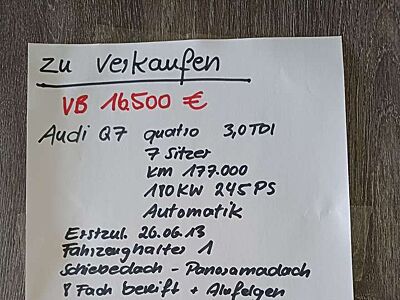 zu verkaufen
VB 16.500 €
Audi Q7 quatro 3,0TDI
7 Sitzer
km 177.000
180KW 245PS
Automatik
Erstzul. 26.06.13
Fahrzeughalter 1
Schiebedach - Panoramadach
8 Fach bereift + Alufelgen